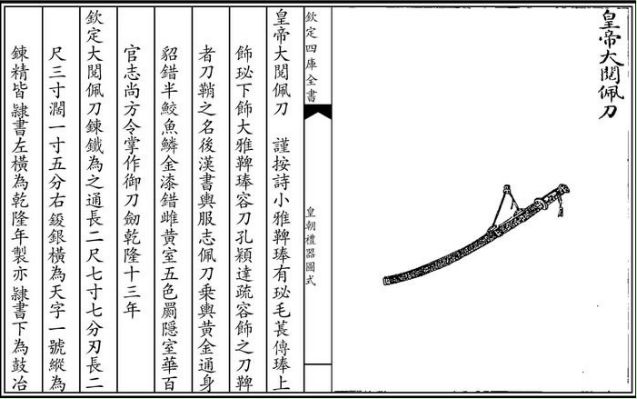 皇帝大閱佩刀
欽定四庫全書
皇朝禮器圖式
皇帝大閱佩刀　謹按詩小雅鞞琫有珌毛萇傳琫上
飾珌下飾大雅鞞琫容刀孔穎達疏容飾之刀鞞
者刀鞘之名後漢書輿服志佩刀乗輿黄金通身
貂錯半鮫魚鱗金漆錯雌黄室五色罽隠室華百
官志尚方令掌作御刀劒乾隆十三年
欽定大閱佩刀鍊鐵為之通長二尺七寸七分刃長二
尺三寸濶一寸五分右鋄銀横為天字一號縱為
鍊精皆隷書左橫為乾隆年製亦隷書下為鼓冶